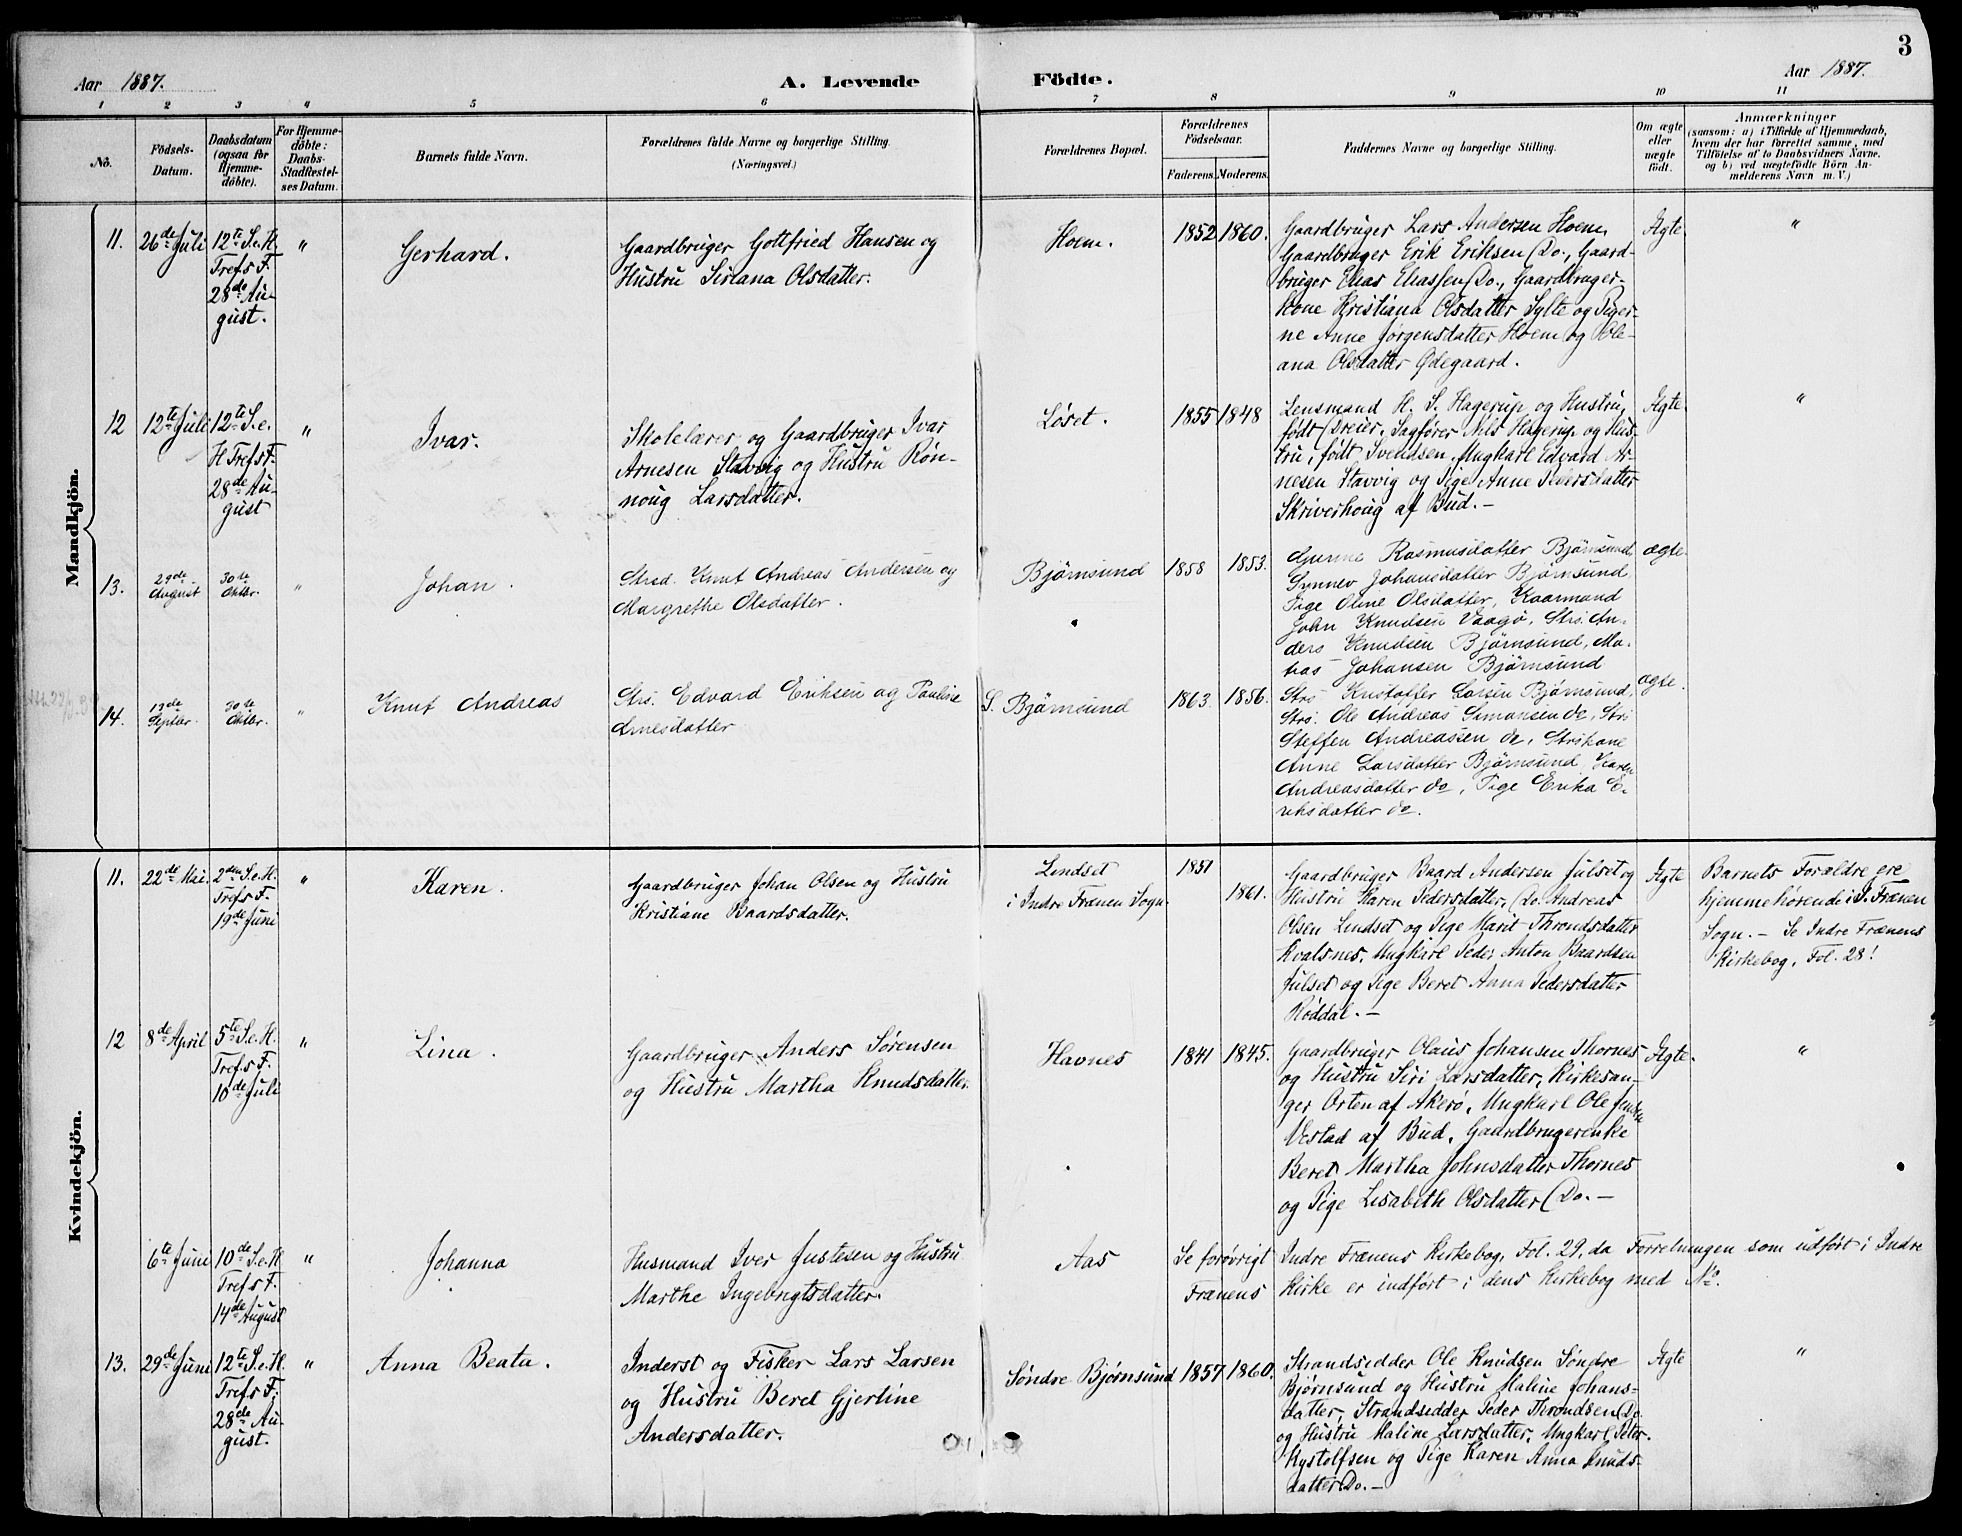 3
Aar 1887.
A. Levende Födte.
Aar 1887.
1 2 3 4 5 6 7 8 9 10 11
No.
Födsels-
Datum.
Daabsdatum
(ogsaa for
Hjemme-
döbte).
For Hjemme-
döbte:
Daabs-
Stadfæstel-
ses Datum.
Barnets fulde Navn.
Forældrenes fulde Navne og borgerlige Stilling.
(Næringsvei.)
Forældrenes Bopæl.
Forældrenes
Födselsaar.
Faderens. Moderens.
Faddernes Navne og borgerlige Stilling.
Om ægte
eller
uægte
födt.
Anmærkninger
(saasom: a) i Tilfælde af Hjemmedaab,
hvem der har forrettet samme, med
Tilföielse af to Daabsvidners Navne,
og b) ved uægtefödte Börn An-
melderens Navn m. V.)
Mandkjön.
11.
26de Juli
12te S. e. H.
Tref.s F.
28de Au-
gust.
"
Gerhard.
Gaardbruger Gottfried Hansen og
Hustru Siriana Olsdatter.
Hoem.
1852 1860.
Gaardbruger Lars Andersen Hoem,
Gaardbruger Erik Eriksen Do., Gaard-
bruger Elias Eliassen Do., Gaardbruger-
kone Kristiana Olsdatter Sylte og Piger-
ne Anne Jørgensdatter Hoem og Ole-
ana Olsdatter Ødegaard.
Ægte.
"
12
12te Juli
12te S. e.
H. Tref.s F.
28de Au-
gust
"
Ivar.
Skolelærer og Gaardbruger Ivar
Arnesen Stavvig og Hustru Røn-
noug Larsdatter.
Løset.
1855 1848
Lensmand H. S. Hagerup og Hustru,
født Dreier, Sagfører Nils Hagerup og Hus-
tru, født Svendsen, Ungkarl Edvard Ar-
nesen Stavvig og Pige Anne Pedersdatter
Skriverhoug af Bud. -
Ægte.
"
13.
29de
August
30te
Oktbr.
"
Johan.
Strsd. Knut Andreas Andersen og
Margrethe Olsdatter.
Bjørnsund
1858 1853.
Gurine Rasmusdatter Bjørnsund,
Synnev Johansdatter Bjørnsund
Pige Oline Olsdatter, Kaarmand
John Knudsen Vaagø, Strs. An-
ders Knudsen Bjørnsund, Ma-
tias Johansen Bjørnsund
ægte.
14.
Septbr.
30te
Oktbr.
"
Knut Andreas
Strs. Edvard Eriksen og Pauline
Arnesdatter
S. Bjørnsund
1863. 1856.
Strs Kristoffer Larsen Bjørnsund,
Strs. Ole Andreas Simonsen do, Strs
Steffen Andreassen do, Strskone
Anne Larsdatter Bjørnsund, Karen
Andreasdatter do, Pige Erika E-
riksdatter do.
ægte.
Kvindekjön.
11.
22de Mai.
2den S. e. H.
Tref.s F.
19de Juni
"
Karen.
Gaardbruger Johan Olsen og Hustru
Kristiane Baardsdatter.
Lindset
i Indre Frænen Sogn.
1851
1861.
Gaardbruger Baard Andersen Julset og
Hustru Karen Pedersdatter, Do. Andreas
Olsen Lindset og Pige Marit Throndsdatter
Kvalsnes, Ungkarl Peder Anton Baardsen
Julset og Pige Beret Anna Pedersdatter
Røddal. -
Ægte
Barnets Forældre ere
hjemmehørende i I. Frænen
Sogn. - Se Indre Frænens
Kirkebog, Fol. 28!
12
8de April
5te S. e. H.
Tref.s F.
10de Juli
"
Lina.
Gaardbruger Anders Sørensen
og Hustru Martha Knudsdatter.
Havnes
1841 1845.
Gaardbruger Olaus Johansen Thornes
og Hustru Siri Larsdatter, Kirkesan-
ger Orten af Akerø, Ungkarl Ole Jensen
Vestad af Bud, Gaardbrugerenke
Beret Martha Johnsdatter Thornes
og Pige Lisabeth Olsdatter Do. -
Ægte.
"
6te Juni
10de S. e. H
Tref.s F.
14de August
"
Johanna
Husmand Iver Justesen og Hustru
Marthe Ingebrigtsdatter.
Aas
Se forøvrigt Indre Frænens Kirkebog, Fol. 29, da Forretningen som udført i Indre
Frænens Kirke er indført i dens Kirkebog med No.
13.
29de Juni
12te S. e. H.
Tref.s F.
28de Au-
gust.
"
Anna Beata.
Inderst og Fisker Lars Larsen
og Hustru Beret Gjertine
Andersdatter.
Søndre Bjørnsund
1857 1860.
Strandsidder Ole Knudsen Søndre
Bjørnsund og Hustru Maline Johans-
datter, Strandsidder Peder Throndsen Do.
og Hustru Maline Larsdatter, Ungkarl Peter
Kystolfsen og Pige Karen Anna Knuds-
datter Do. -
Ægte
"